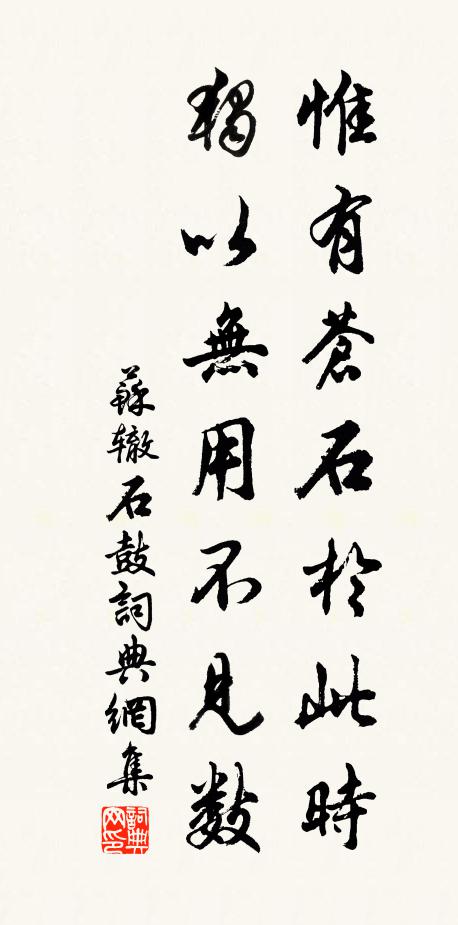 惟有蒼石於此時
獨以無用不見數
蘇轍石鼓詞典網集
詞典網印